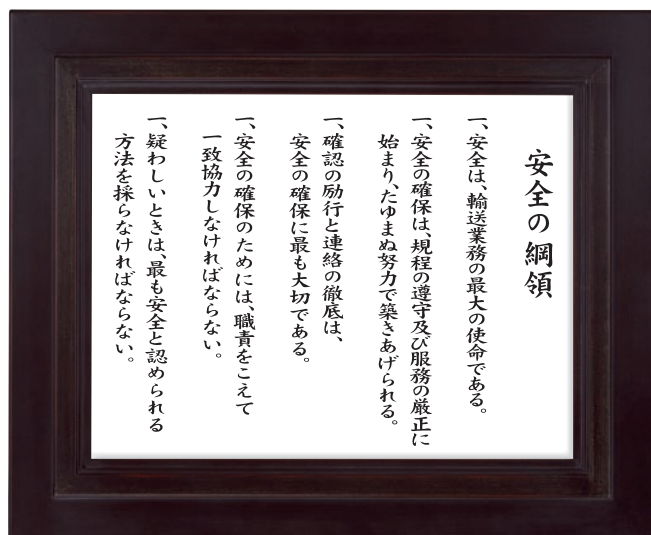 安全の綱領
一、安全は、輸送業務の最大の使命である。
一、安全の確保は、規程の遵守及び服務の厳正に
始まり、たゆまぬ努力で築きあげられる。
一、確認の励行と連絡の徹底は、
安全の確保に最も大切である。
一、安全の確保のためには、職責をこえて
一致協力しなければならない。
一、疑わしいときは、最も安全と認められる
方法を採らなければならない。